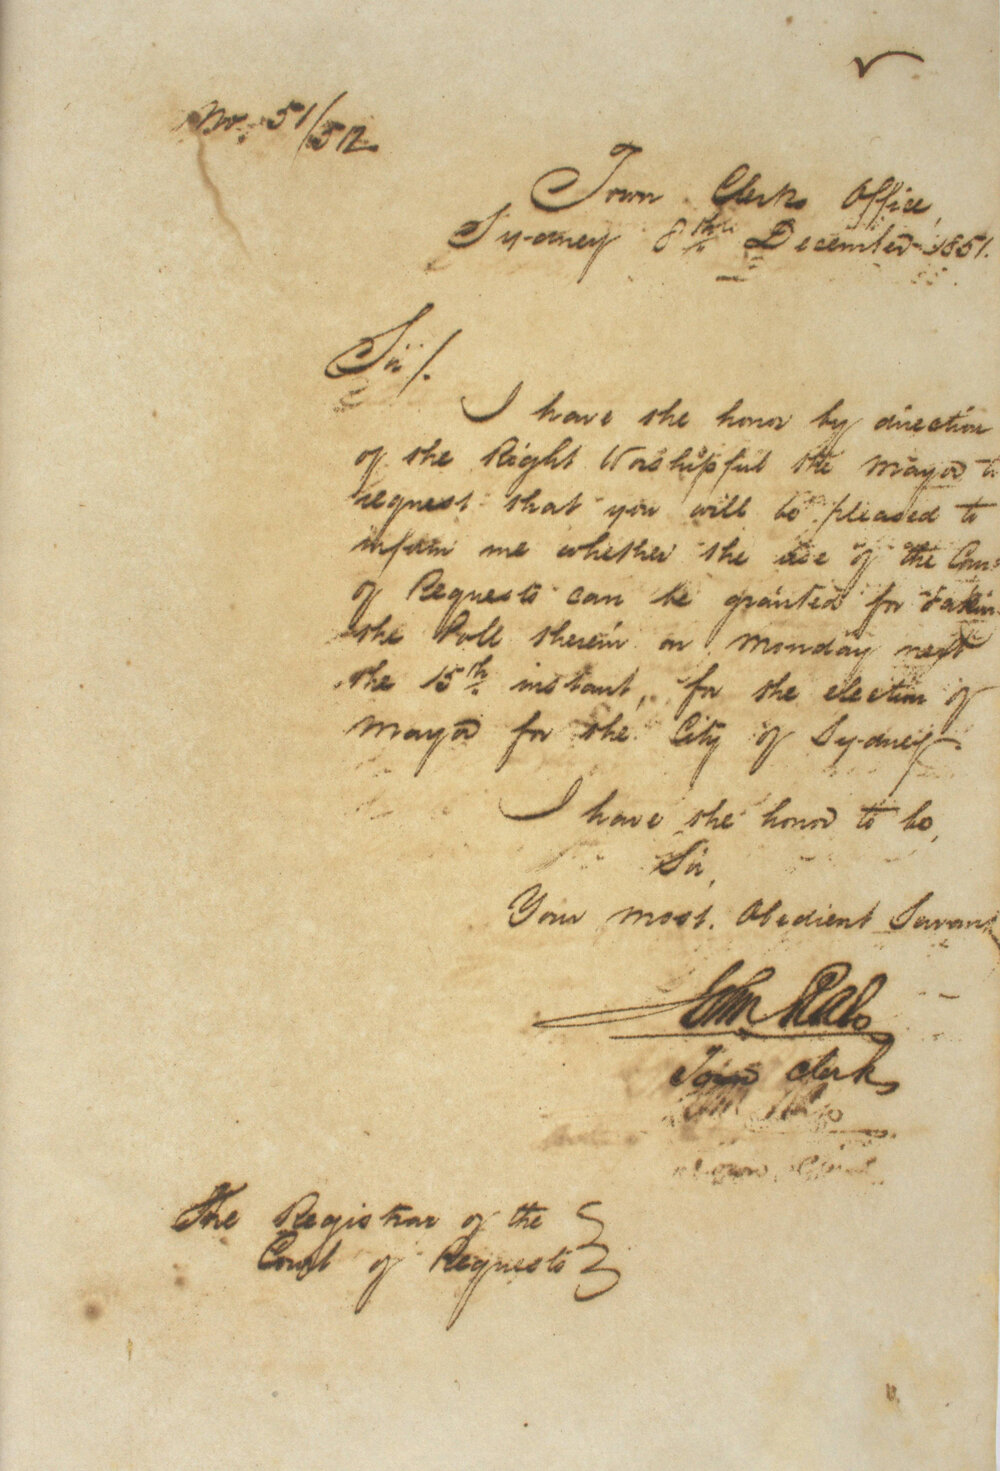 No. 51/512.
Town Clerks Office,
Sydney 8th December 1851.
Sir/.
I have the honor by direction
of the Right Worshipful the Mayor to
request that you will be pleased to
inform me whether the use of the Cour
of Requests can be granted for takin
the Poll therein on Monday next
the 15th instant, for the election of
Mayor for the City of Sydney
I have the honor to be,
Sir,
Your most. Obedient Servant
John Rae
Town Clerk
The Registrar of the
Court of Requests